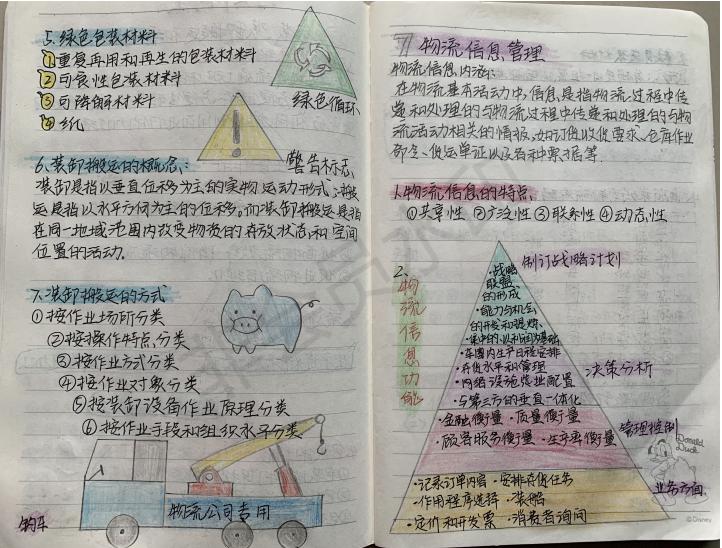 5.绿色包装材料
①重复再用和再生的包装材料
②可食性包装材料
③可降解材料
④纸
绿色循环
警告标志
6.装卸搬运的概念:
装卸是指以垂直位移为主的实物运动形式;搬
运是指以水平方向为主的位移。而装卸搬运是指
在同一地域范围内改变物资的存放状态和空间
位置的活动。
7.装卸搬运的方式
①按作业场所分类
②按操作特点分类
③按作业方式分类
④按作业对象分类
⑤按装卸设备作业原理分类
⑥按作业手段和组织水平分类
物流公司专用
钩车
7 物流信息管理
物流信息内涵:
在物流基本活动中,信息是指物流过程中传
递和处理的与物流过程中传递和处理的与物
流活动相关的情报,如订货收货要求、仓库作业
部仓、货运单证以及各种票据等.
1.物流信息的特点
①共享性 ②广泛性 ③联系性 ④动态性
2、物流信息功能
制订战略计划
·战略
联盟
的形成
·能力与机会
的开发和提炼
·集中的以利润为基础
·车辆内生产日程安排
·存货水平和管理
·网络设施选业配置
·与第三方的垂直一体化
决策分析
·金融衡量 ·质量衡量
·顾客服务衡量 ·生产率衡量
管理控制
·记录订单内容 ·安排存货任务
·作用程序选择 ·装船
·定价和开发票 ·消费者询问
业务方面
Donald
Duck
©Disney